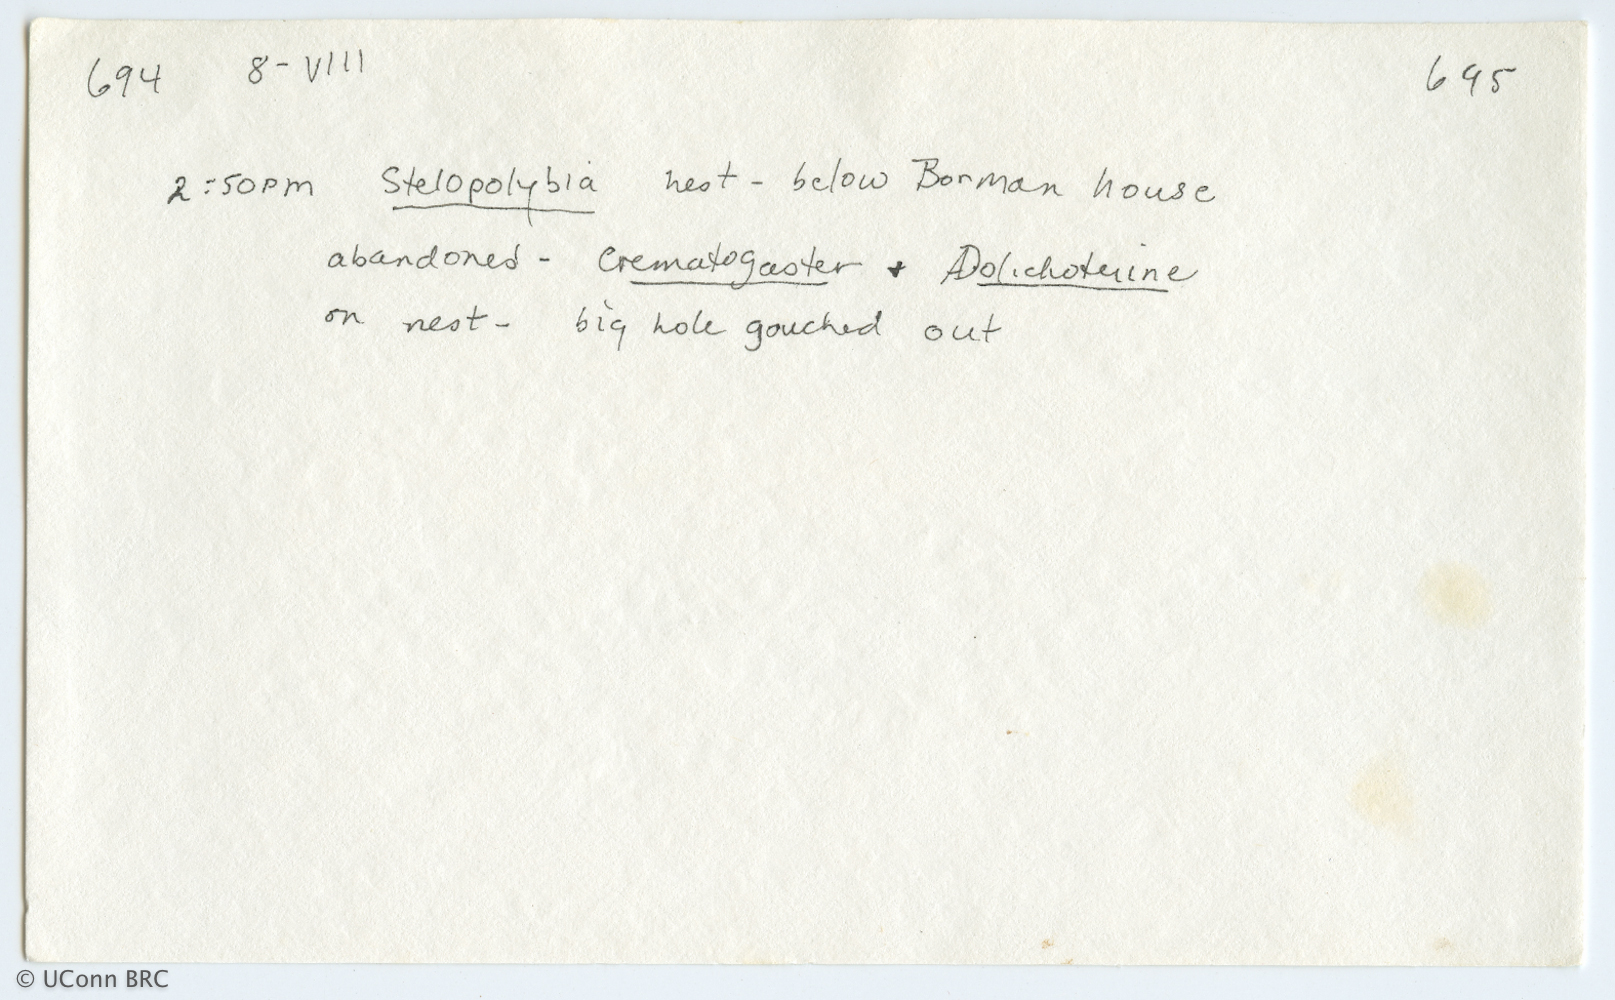 694 8-VIII 695
2:50pm Stelopolybia nest - below Borman house
abandoned - Crematogaster + Dolichoterine
on nest - big hole gouched out
© UConn BRC